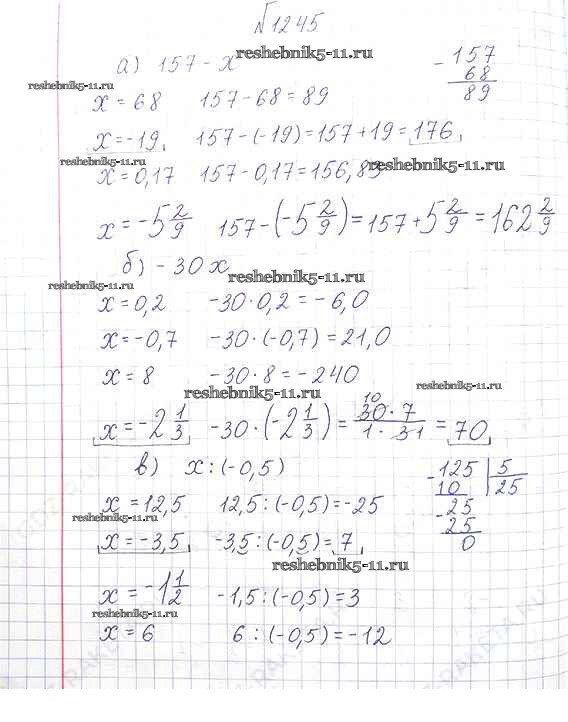 №1245
reshebnik5-11.ru
а) 157 - x
- 157
68
89
reshebnik5-11.ru
x = 68 157 - 68 = 89
x = -19, 157 - (-19) = 157 + 19 = 176,
reshebnik5-11.ru reshebnik5-11.ru
x = 0,17 157 - 0,17 = 156,83
x = -5 2/9 157 - (-5 2/9) = 157 + 5 2/9 = 162 2/9
б) -30x
reshebnik5-11.ru
reshebnik5-11.ru
x = 0,2 -30 · 0,2 = -6,0
x = -0,7 -30 · (-0,7) = 21,0
x = 8 -30 · 8 = -240
reshebnik5-11.ru
reshebnik5-11.ru
x = -2 1/3 -30 · (-2 1/3) = 10 30 · 7 / 1 · 3 1 = 70
в) x : (-0,5)
- 125 | 5
10 | 25
- 25
25
0
x = 12,5 12,5 : (-0,5) = -25
reshebnik5-11.ru
x = -3,5 -3,5 : (-0,5) = 7
reshebnik5-11.ru
x = -1 1/2 -1,5 : (-0,5) = 3
reshebnik5-11.ru
x = 6 6 : (-0,5) = -12